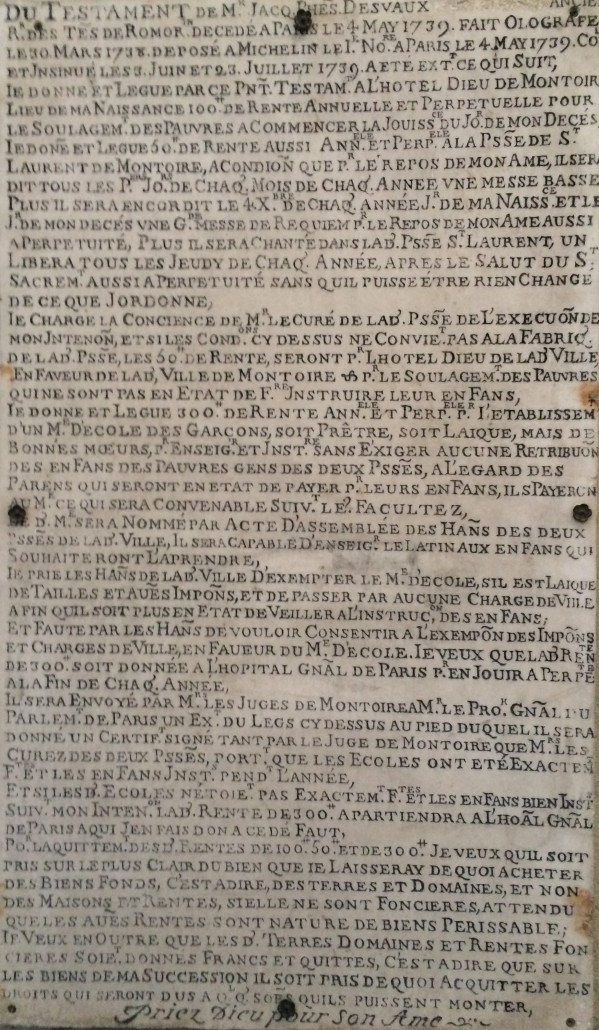 DU TESTAMENT DE Mᴿ JACQ. PHES. DESVAUX ANCIEN
R. DES TES DE ROMORᴺ DECEDÉ A PARIS LE 4 MAY 1739. FAIT OLOGRAFE
LE 30 MARS 1738. DEPOSÉ A MICHELIN LE J.ᴺᵉ NO.ᴿᴱ A PARIS LE 4 MAY 1739. CO
ET JNSINUE LES 3. JUIN ET 23. JUILLET 1739. A ETE EXT.ᵗ CE QUI SUIT,
JE DONNE ET LEGUE PAR CE PNT. TESTAM.ᵗ A L'HOTEL DIEU DE MONTOIR
LIEU DE MA NAISSANCE 100.ᵗᵗ DE RENTE ANNUELLE ET PERPETUELLE POUR
LE SOULAGEM.ᵀ DES PAUVRES A COMMENCER LA JOUISS.ᶜᴱ DU JO.ᴿ DE MON DECÉS,
JE DONNE ET LEGUE 50.ᵗᵗ DE RENTE AUSSI ANN.ᴱᴸᴱ ET PERP.ᴱᴸᴱ A LA PSS̃E DE S.ᵀ
LAURENT DE MONTOIRE, A CONDIOÑ QUE P.ᴿ LE REPOS DE MON AME, IL SERA
DIT TOUS LES P.ᴱᴿ JO.ᴿ DE CHAQ. MOIS DE CHAQ. ANNEE, VNE MESSE BASSE
PLUS IL SERA ENCOR DIT LE 4 X.ᴮᴿᴱ DE CHAQ. ANNÉE J.ᴿ DE MA NAISS.ᶜᴱ ET LE
J.ᴿ DE MON DECÉS VNE G.ᴿ MESSE DE REQUIEM P.ᴿ LE REPOS DE MON AME AUSSI
A PERPETUITÉ, PLUS IL SERA CHANTÉ DANS LAD. PSSE S.ᵀ LAURENT, UN
LIBERA TOUS LES JEUDY DE CHAQ. ANNÉE, APRES LE SALUT DU S.ᵀ
SACREM.ᵀ AUSSI A PERPETUITÉ SANS QUIL PUISSE ETRE RIEN CHANGÉ
DE CE QUE JORDONNE,
JE CHARGE LA CONCIENCE DE M.ᴿ LE CURÉ DE LAD. PSS̃E DE L'EXECUOÑ DE
MON JNTENOÑ, ET SI LES COND.ᴼᴺˢ CY DESSUS NE CONVIE.ᵀ PAS A LA FABRIQ.
DE LAD. PSSE, LES 50.ᵗᵗ DE RENTE, SERONT P.ᴿ L'HOTEL DIEU DE LAD. VILLE
EN FAVEUR DE LAD. VILLE DE MONTOIRE P.ᴿ LE SOULAGEM.ᵀ DES PAUVRES
QUI NE SONT PAS EN ETAT DE F.ᴿᴱ JNSTRUIRE LEUR ENFANS,
JE DONNE ET LEGUE 300.ᵗᵗ DE RENTE ANN.ᴱᴸᴱ ET PERP.ᴱᴸᴱ P.ᴿ L'ETABLISSEM
D'UN M.ᴱ D'ECOLE DES GARÇONS, SOIT PRÊTRE, SOIT LAIQUE, MAIS DE
BONNES MOEURS, P.ᴿ ENSEIG.ᴿ ET JNST.ᴿᴱ SANS EXIGER AUCUNE RETRIBUOÑ
DES ENFANS DES PAUVRES GENS DES DEUX PSSÉS, A L'EGARD DES
PARENS QUI SERONT EN ETAT DE PAYER P.ᴿ LEURS ENFANS, ILS PAYERON
AU M.ᴱ CE QUI SERA CONVENABLE SUIV.ᵀ LE.ᴿ FACULTEZ,
LE D. M.ᴱ SERA NOMMÉ PAR ACTE D'ASSEMBLÉE DES HAÑS DES DEUX
PSSES DE LAD. VILLE, IL SERA CAPABLE D'ENSEIG.ᴿ LE LATIN AUX ENFANS QUI
SOUHAITERONT L'APRENDRE,
JE PRIE LES HAÑS DE LAD. VILLE D'EXEMPTER LE M.ᴱ D'ECOLE, SIL EST LAIQUE
DE TAILLES ET AUES̃ IMPOÑS, ET DE PASSER PAR AUCUNE CHARGE DE VILLE
AFIN QUIL SOIT PLUS EN ETAT DE VEILLER A L'INSTRUC.ᴼᴺ DES ENFANS;
ET FAUTE PAR LES HAÑS DE VOULOIR CONSENTIR A L'EXEMPOÑ DES IMPOÑS
ET CHARGES DE VILLE, EN FAUEUR DU M.ᴱ D'ECOLE. JE VEUX QUE LAD. RENTE
DE 300.ᵗᵗ SOIT DONNÉE A L'HOPITAL GNÃL DE PARIS P.ᴿ EN JOUIR A PERPE.ᵀᴱ
A LA FIN DE CHAQ. ANNÉE,
IL SERA ENVOYÉ PAR M.ᴿˢ LES JUGES DE MONTOIRE A M.ᴿ LE PRO.ᴿ GNÃL DU
PARLEM. DE PARIS UN EX.ᵀ DU LEGS CY DESSUS AU PIED DUQUEL IL SERA
DONNÉ UN CERTIF.ᵀ SIGNÉ TANT PAR LE JUGE DE MONTOIRE QUE M.ᴿˢ LES
CUREZ DES DEUX PSSES̃, PORT.ᵀ QUE LES ECOLES ONT ETÉ EXACTEM̃
F.ᵀᴱˢ ET LES ENFANS JNST.ˢ PEND.ᵀ L'ANNÉE,
ET SI LES D. ECOLES NÉTOIE.ᵀ PAS EXACTEM.ᵀ F.ᵀᴱˢ ET LES ENFANS BIEN INST
SUIV.ᵀ MON INTEN.ᴼᴺ LAD. RENTE DE 300.ᵗᵗ APARTIENDRA A L'HOÃL GNÃL
DE PARIS A QUI J'EN FAIS DON A CE DÉFAUT,
PO.ᴿ LAQUITTEM. DES D. RENTES DE 100.ᵗᵗ 50.ᵗᵗ ET DE 300.ᵗᵗ JE VEUX QUIL SOIT
PRIS SUR LE PLUS CLAIR DU BIEN QUE JE LAISSERAY DE QUOI ACHETER
DES BIENS FONDS, C'EST A DIRE, DES TERRES ET DOMAINES, ET NON
DES MAISONS ET RENTES, SI ELLE NE SONT FONCIERES, ATTENDU
QUE LES AUES̃ RENTES SONT NATURE DE BIENS PERISSABLE;
JE VEUX EN OUTRE QUE LES D. TERRES DOMAINES ET RENTES FON
CIERES SOIE.ᵀ DONNES FRANCS ET QUITTES, C'EST A DIRE QUE SUR
LES BIENS DE MA SUCCESSION IL SOIT PRIS DE QUOI ACQUITTER LES
DROITS QUI SERONT DUS A Q.LQ. SOES̃ QUILS PUISSENT MONTER,
Priez Dieu pour Son Ame